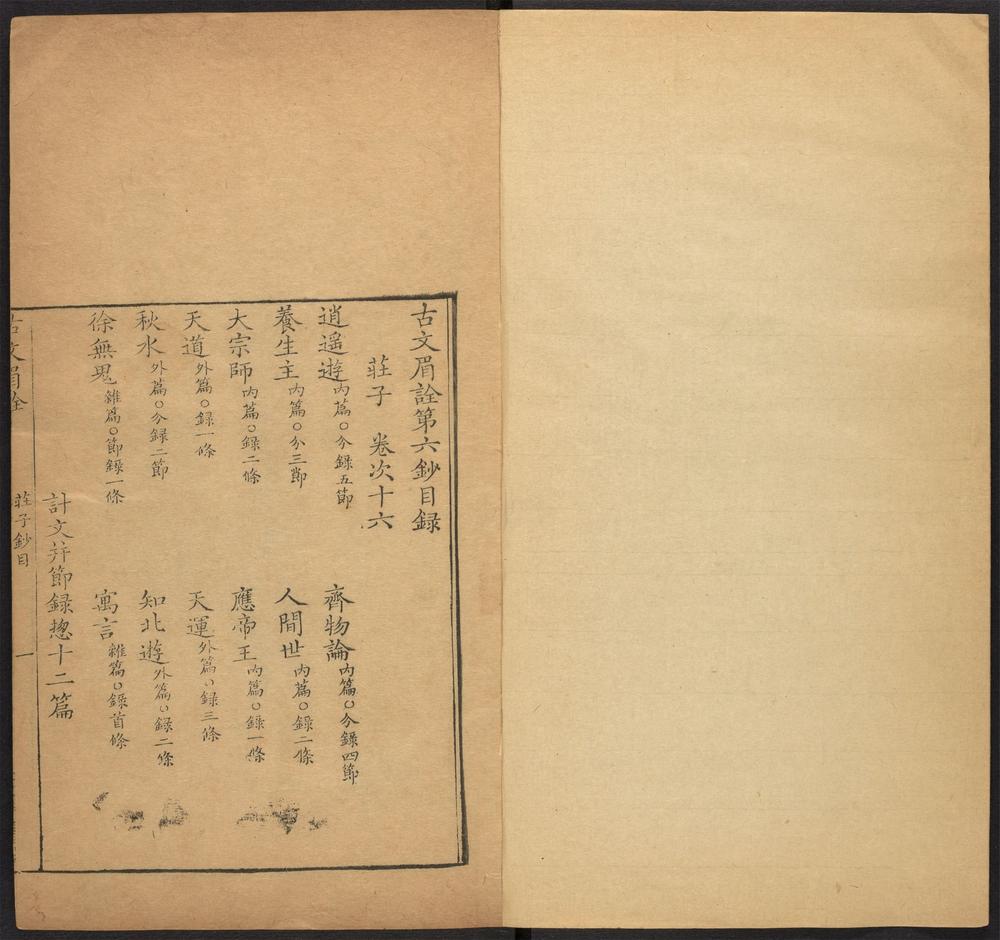 古文眉詮第六鈔目録
莊子 卷次十六
逍遥遊内篇○分録五節 齊物論内篇○分錄四節
養生主内篇○分三節 人間世内篇○録二條
大宗師内篇○録二條 應帝王内篇○録一條
天道外篇○録一條 天運外篇○録三條
秋水外篇○分録二節 知北遊外篇○録二條
徐無鬼雜篇○節録一條 寓言雜篇○録首條
計文并節録惣十二篇
古文眉詮 莊子鈔目 一